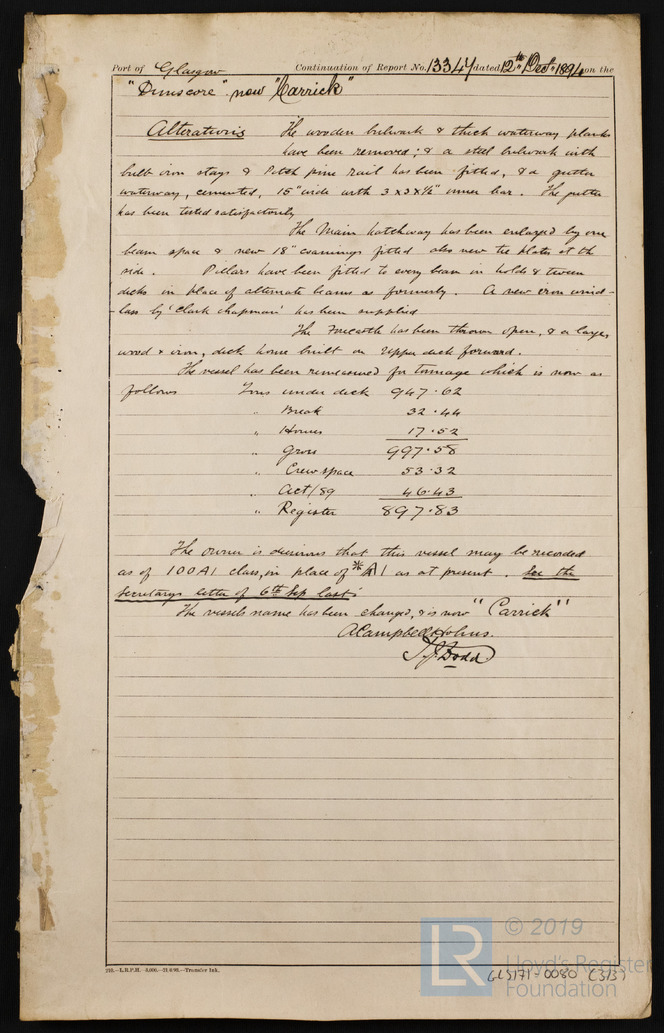 Port of Glasgow Continuation of Report No. 13347 dated 12th Dec 1894 on the
"Dunscore" now "Carrick"
Alterations The wooden bulwark & thick waterway planks
have been removed; & a steel bulwark with
bulb iron stays & Pitch pine rail has been fitted, & a gutter
waterway, cemented, 15" wide with 3 x 3 x ½" inner bar. The gutter
has been tested satisfactorily
The Main hatchway has been enlarged by one
beam space & new 18" coamings fitted also new tie plates at the
side. Pillars have been fitted to every beam in hold & tween
decks in place of alternate beams as formerly. A new iron wind-
-lass by 'Clark Chapman' has been supplied
The Forecastle has been thrown open, & a large,
wood & iron, deck house built on Upper deck forward.
The vessel has been remeasured for tonnage which is now as
follows Tons under deck 947.62
" Break 32.44
" Houses 17.52
" Gross 997.58
" Crew space 53.32
" Act/89 46.43
" Register 897.83
The owner is desirous that this vessel may be recorded
as of 100A1 class, in place of A1 as at present. See the
Secretarys letter of 6th Sep last.
The vessels name has been changed, & is now "Carrick"
A Campbell Holms.
J. J. Dodd
210.—L.R.P.H. 5,000.—21.9.93.—Transfer Ink.
© 2019
LR
Lloyd's Register
Foundation
GLS171-0080 (3/3)